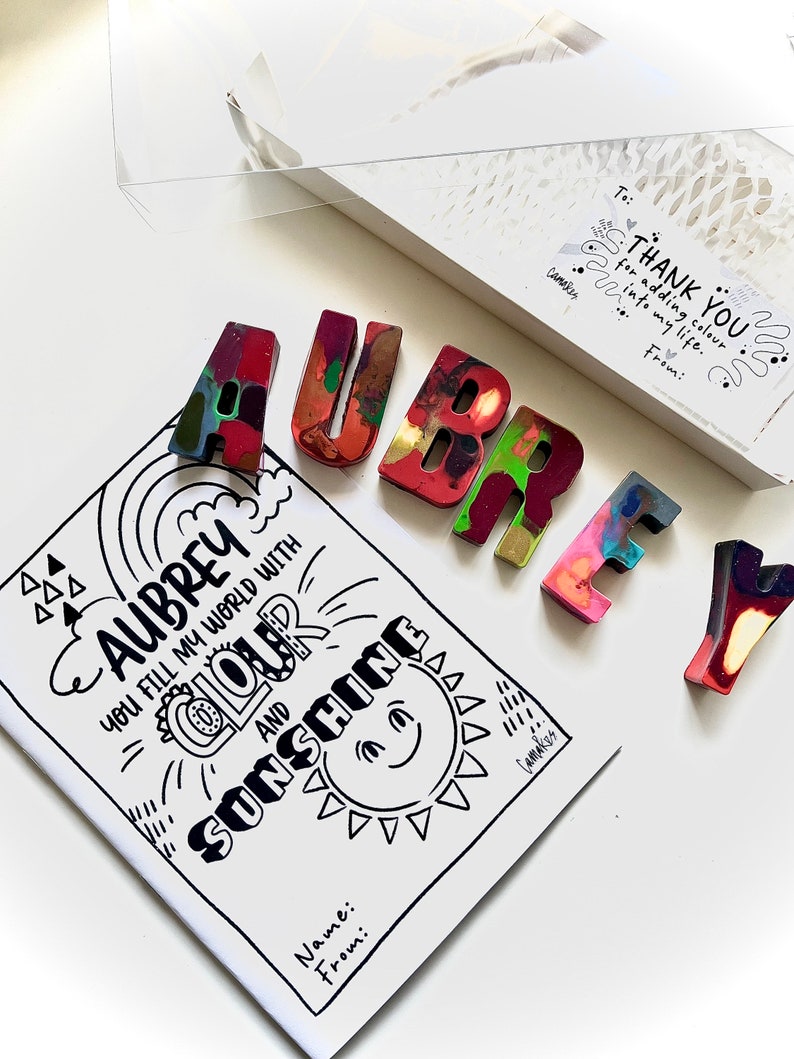 To:
THANK YOU
for adding colour
into my life.
From:
AUBREY
AUBREY
YOU FILL MY WORLD WITH
COLOUR
AND
SUNSHINE
Name:
From: